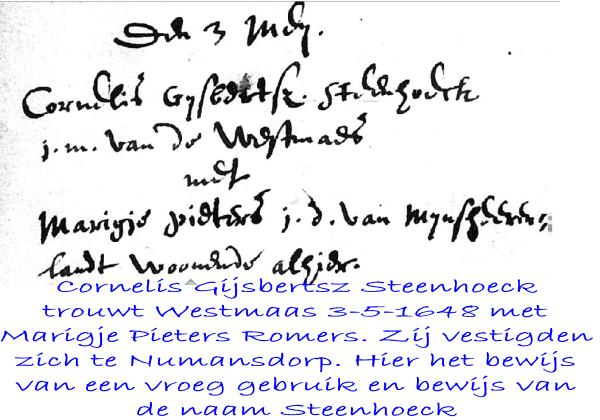 Den 3 Meij.
Cornelis Gysbertsz. Steenhoeck
j. m. van de Westmaes
met
Marigje Pieters j. d. van Mynsheeren=
landt woonende alhier.
Cornelis Gijsbertsz Steenhoeck
trouwt Westmaas 3-5-1648 met
Marigje Pieters Romers. Zij vestigden
zich te Numansdorp. Hier het bewijs
van een vroeg gebruik en bewijs van
de naam Steenhoeck